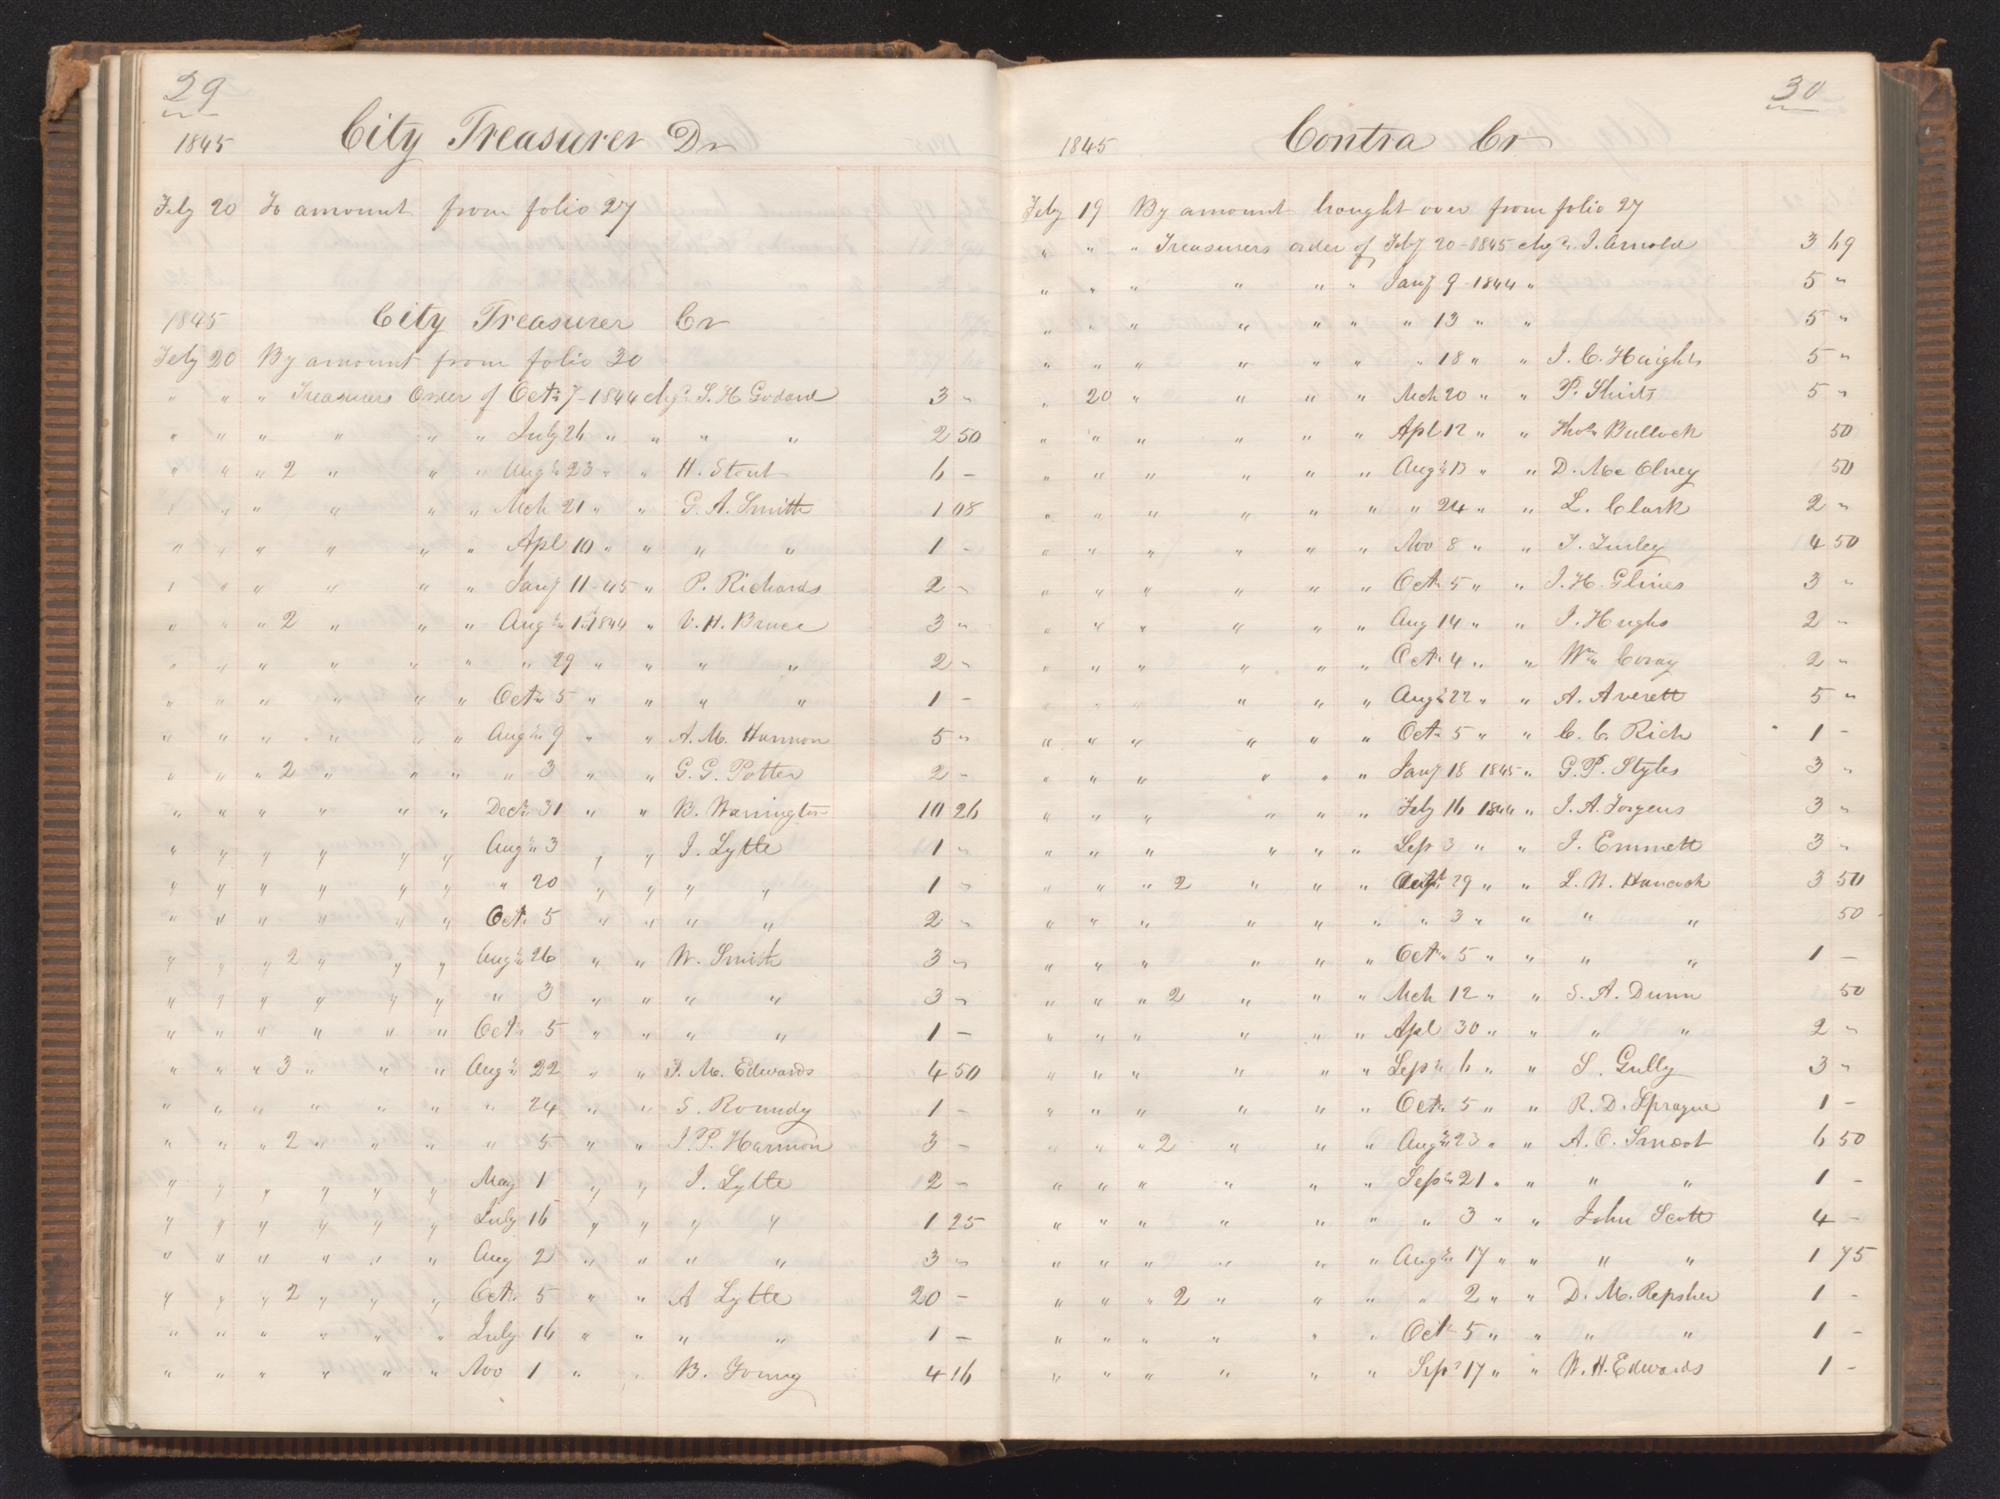 29
1845 City Treasurer Dr
Feby 20 To amount from folio 27
1845 City Treasurer Cr
Feby 20 By amount from folio 30
" " " Treasurers Order of Octr 7-1844 chgd S. H Godard 3 "
" " " " " " July 26 " " " " 2 50
" " " 2 " " " Augt 23 " " H. Stout 6 -
" " " " " " Mch 21 " " G. A. Smith 1 08
" " " " " " Apl 10 " " " " 1 -
" " " " " " Jany 11-45 " P. Richards 2 "
" " " 2 " " " Augt 1 1844 " V. H. Bruce 3 "
" " " " " " " 29 " " " " 2 "
" " " " " " Octr 5 " " " " 1 -
" " " " " " Augt 9 " " A. M. Harmon 5 "
" " " 2 " " " 3 " " G. G. Potter 2 -
" " " " " " Decr 31 " " B. Warrington 10 26
" " " " " " Augt 3 " " J. Lytle 1 "
" " " " " " " 20 " " " " 1 "
" " " " " " Octr 5 " " " " 2 "
" " " 2 " " " Augt 26 " " W. Smith 3 "
" " " " " " " 3 " " " " 3 "
" " " " " " Octr 5 " " " " 1 -
" " " 3 " " " Augt 22 " " F. M. Edwards 4 50
" " " " " " " 24 " " S. Roundy 1 -
" " " 2 " " " " 5 " " J. P. Harmon 3 -
" " " " " " May 1 " " J. Lytle 2 "
" " " " " " July 16 " " " " 1 25
" " " " " " Aug 2 " " " " 3 "
" " " 2 " " " Octr 5 " " A Lytle 20 -
" " " " " " July 16 " " " " 1 -
" " " " " " Nov 1 " " B. Young 4 16
30
1845 Contra Cr
Feby 19 By amount brought over from folio 27
" " " Treasurers order of Feby 20-1845 chgd J. Arnold 3 69
" " " " " " Jany 9-1844 " 5 "
" " " " " " " 13 " " 5 "
" " " " " " " 18 " " I. C. Haight 5 "
" 20 " " " " Mch 20 " " P. Shirts 5 "
" " " " " " Apl 12 " " Thos Bullock 50
" " " " " " Augt 13 " " D. Mc Olney 50
" " " " " " " 24 " " L. Clark 2 "
" " " " " " Nov 8 " " T. Turley 4 50
" " " " " " Octr 5 " " J. H. Glines 3 "
" " " " " " Aug 14 " " J. Hughs 2 "
" " " " " " Octr 4 " " Wm Coray 2 "
" " " " " " Augt 22 " " A. Averett 5 "
" " " " " " Octr 5 " " C. C. Rich 1 -
" " " " " " Jany 18 1845 " G. P. Styles 3 "
" " " " " " Feby 16 1844 " J. A. Forgeus 3 "
" " " " " " Sep 3 " " J. Emmett 3 "
" " " 2 " " " 29 " " L. N. Hancock 3 50
" " " " " " " 3 " " " " 50
" " " " " " Octr 5 " " " " 1 -
" " " 2 " " " Mch 12 " " S. A. Dunn 50
" " " " " " Apl 30 " " " " 2 "
" " " " " " Sept 6 " " S. Gully 3 "
" " " " " " Octr 5 " " R. D. Sprague 1 -
" " " 2 " " " Augt 23 " " A. O. Smoot 6 50
" " " " " " Sept 21 " " " " 1 -
" " " " " " " 3 " " John Scott 4 -
" " " " " " Augt 17 " " " " 1 75
" " " 2 " " " " 2 " " D. M. Repsher 1 -
" " " " " " Oct 5 " " " " 1 -
" " " " " " Sept 17 " " W. H. Edwards 1 -